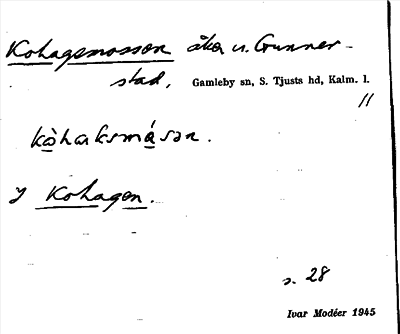 Kohagsmossen åker u. Gunner-
stad, Gamleby sn, S. Tjusts hd, Kalm. l.
11
kòhaksmásən.
J Kohagen.
s. 28
Ivar Modéer 1945